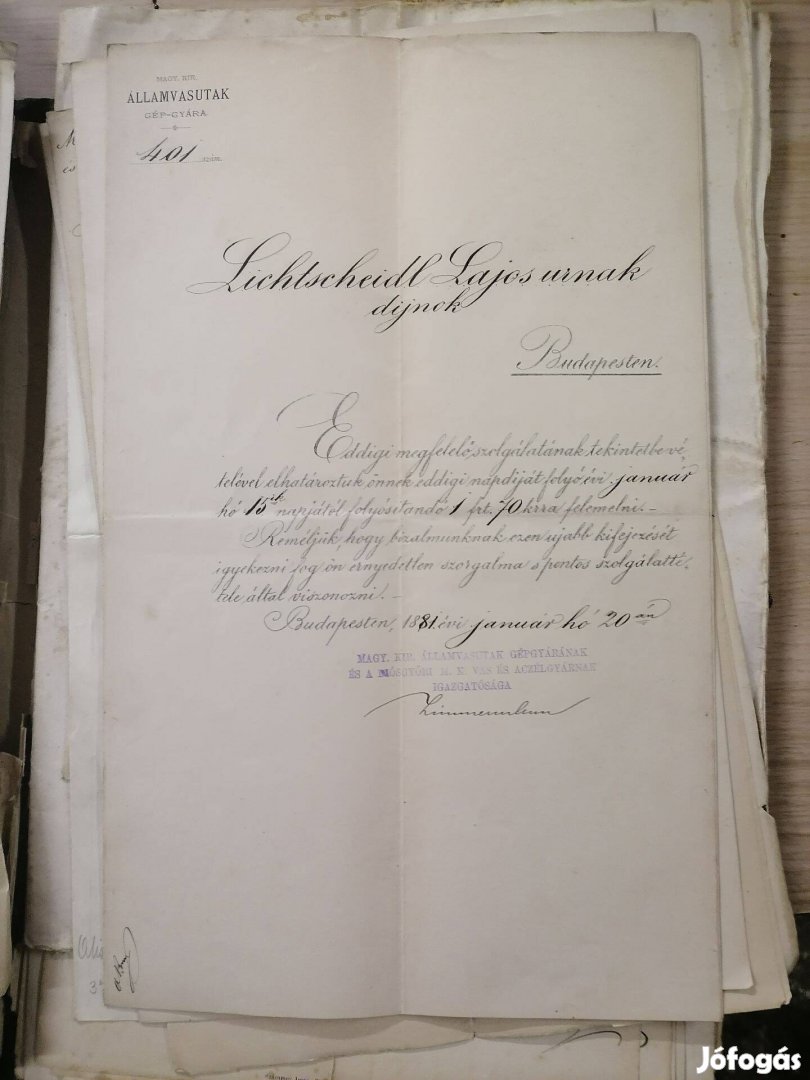 MAGY. KIR.
ÁLLAMVASUTAK
GÉP-GYÁRA
401 szám.
Lichtscheidl Lajos urnak
dijnok
Budapesten.
Eddigi megfelelő szolgálatának tekintetbe vé-
telével elhatároztuk önnek eddigi napdiját folyó évi január
hó 15ik napjától folyósitandó 1 frt. 70 krra felemelni. –
Reméljük, hogy bizalmunknak ezen ujabb kifejezését
igyekezni fog ön ernyedetlen szorgalma s pontos szolgálatté-
tele által viszonozni. –
Budapesten, 1881 évi január hó 20án
MAGY. KIR. ÁLLAMVASUTAK GÉPGYÁRÁNAK
ÉS A DIÓSGYŐRI M. K. VAS ÉS ACZÉLGYÁRNAK
IGAZGATÓSÁGA
Jófogás